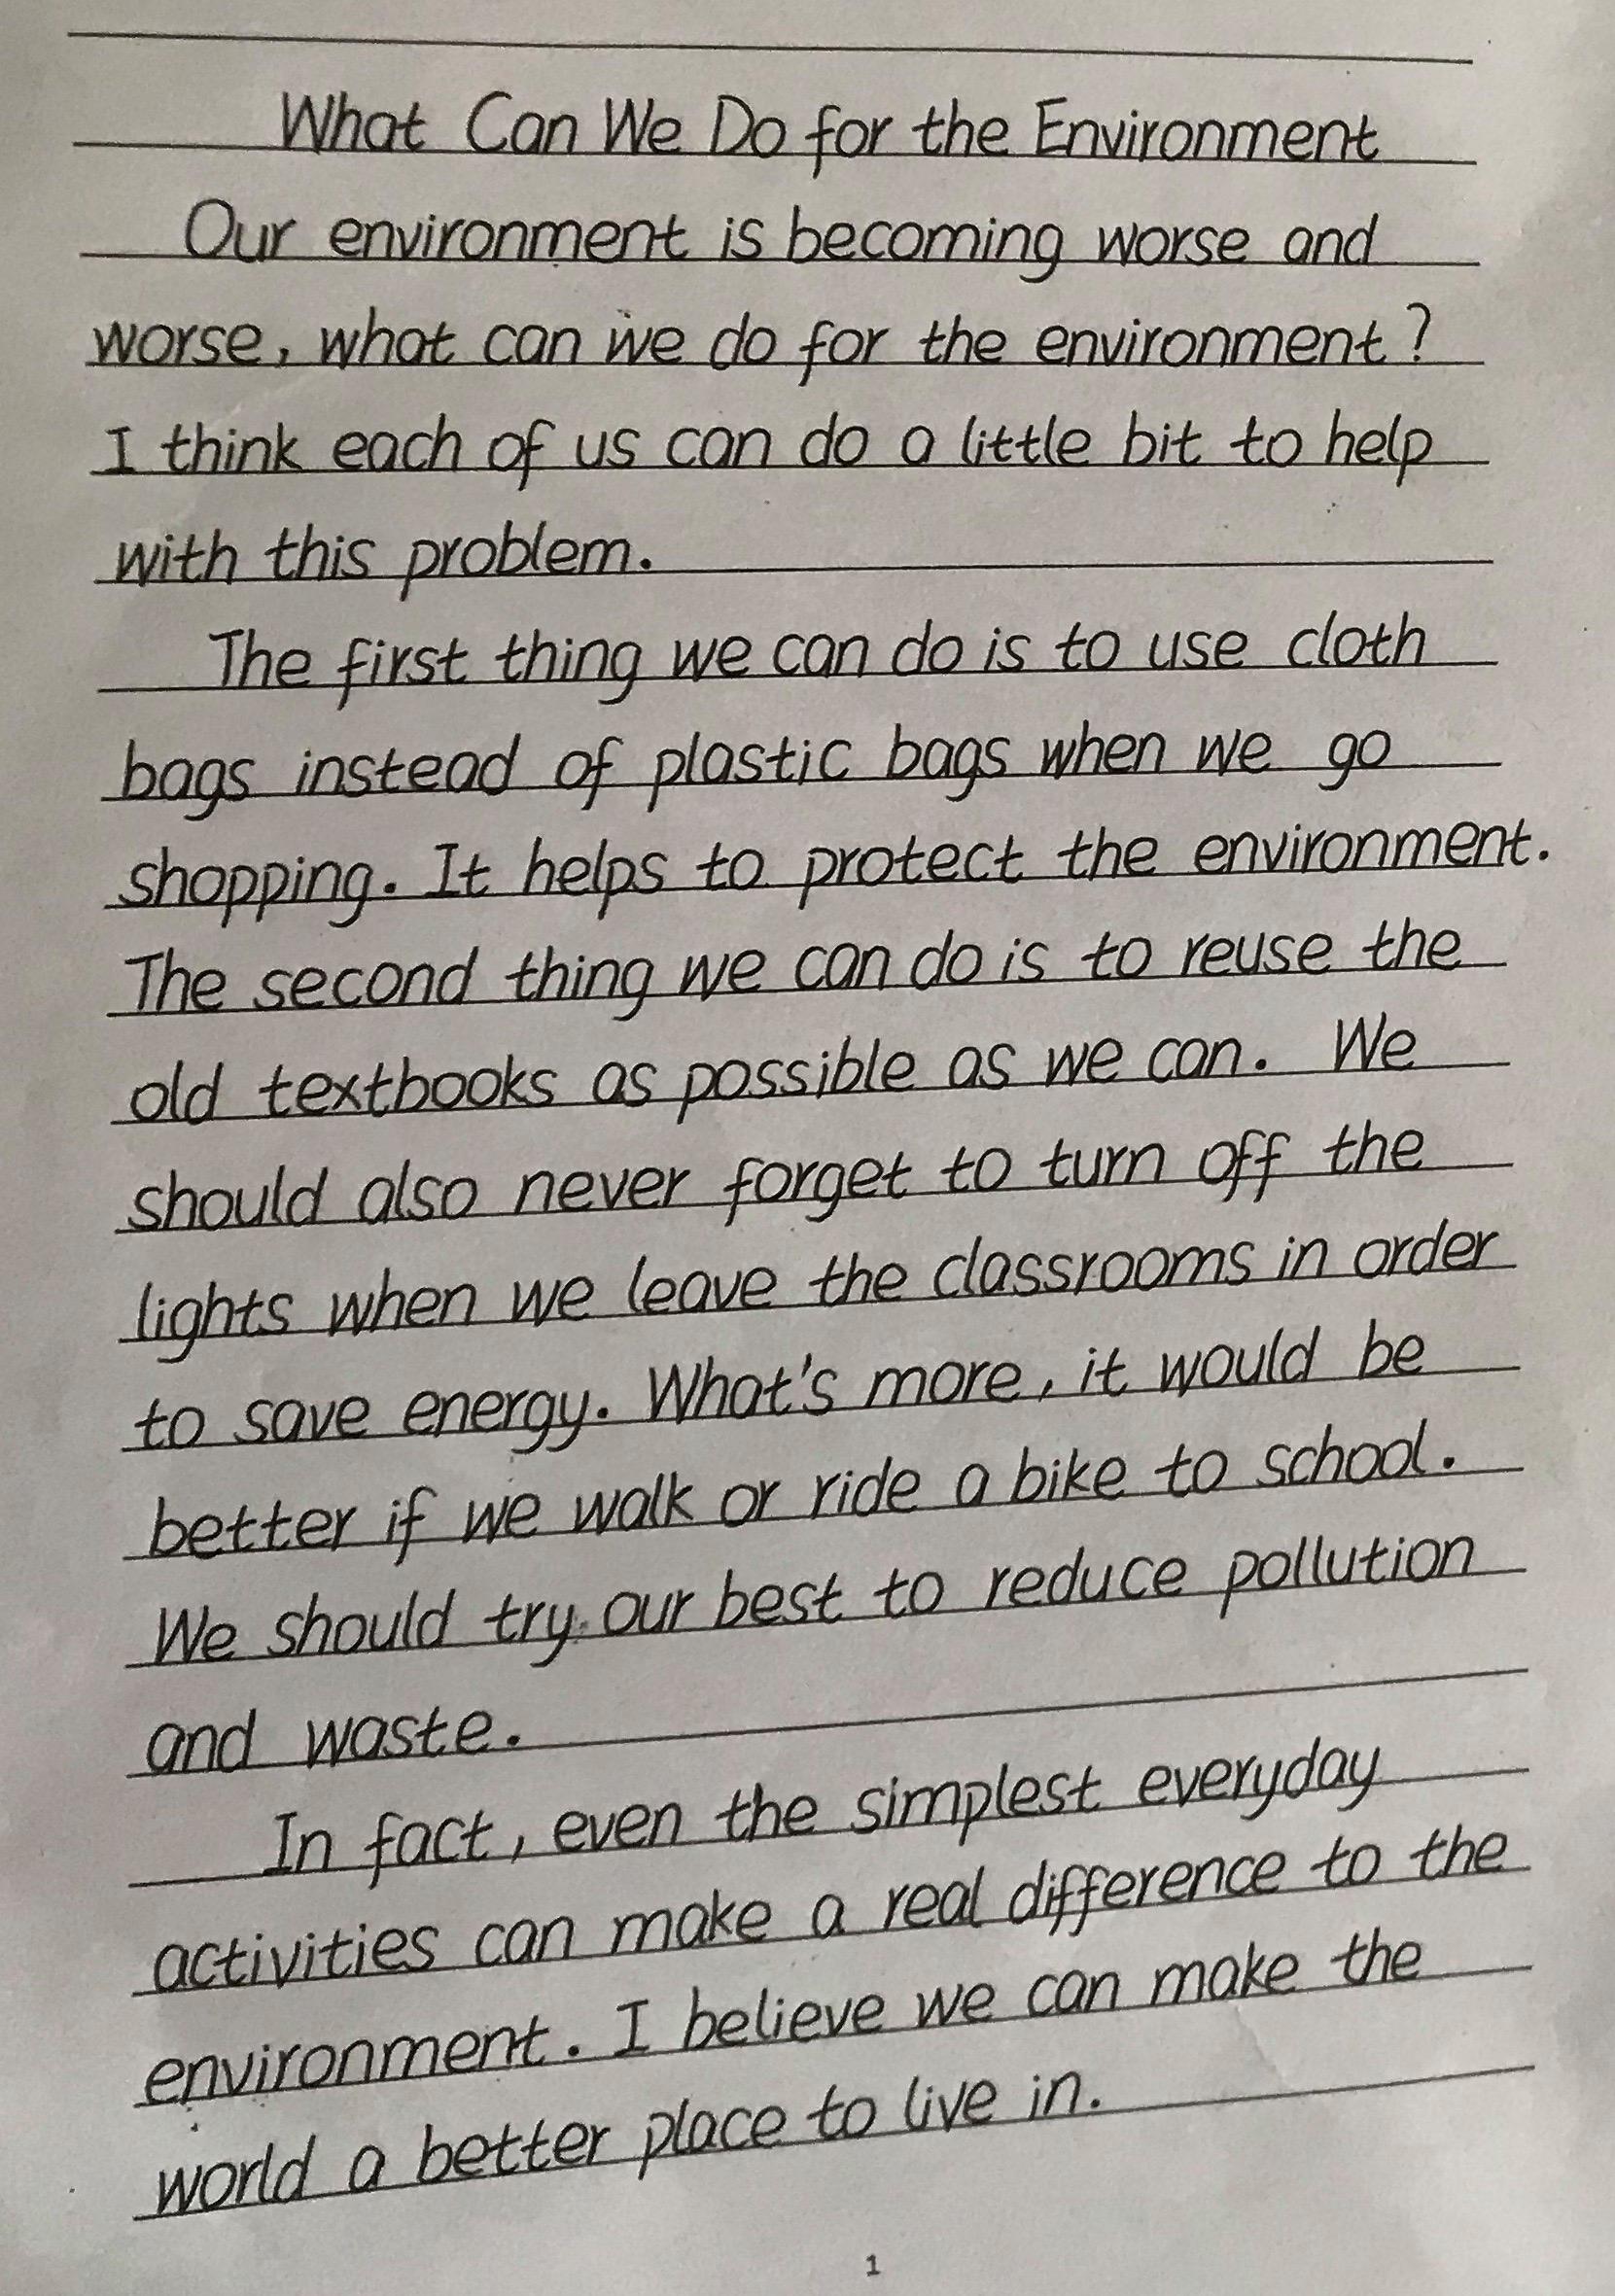 What Can We Do for the Environment
Our environment is becoming worse and
worse, what can we do for the environment?
I think each of us can do a little bit to help
with this problem.
The first thing we can do is to use cloth
bags instead of plastic bags when we go
shopping. It helps to protect the environment.
The second thing we can do is to reuse the
old textbooks as possible as we can. We
should also never forget to turn off the
lights when we leave the classrooms in order
to save energy. What's more, it would be
better if we walk or ride a bike to school.
We should try our best to reduce pollution
and waste.
In fact, even the simplest everyday
activities can make a real difference to the
environment. I believe we can make the
world a better place to live in.
1